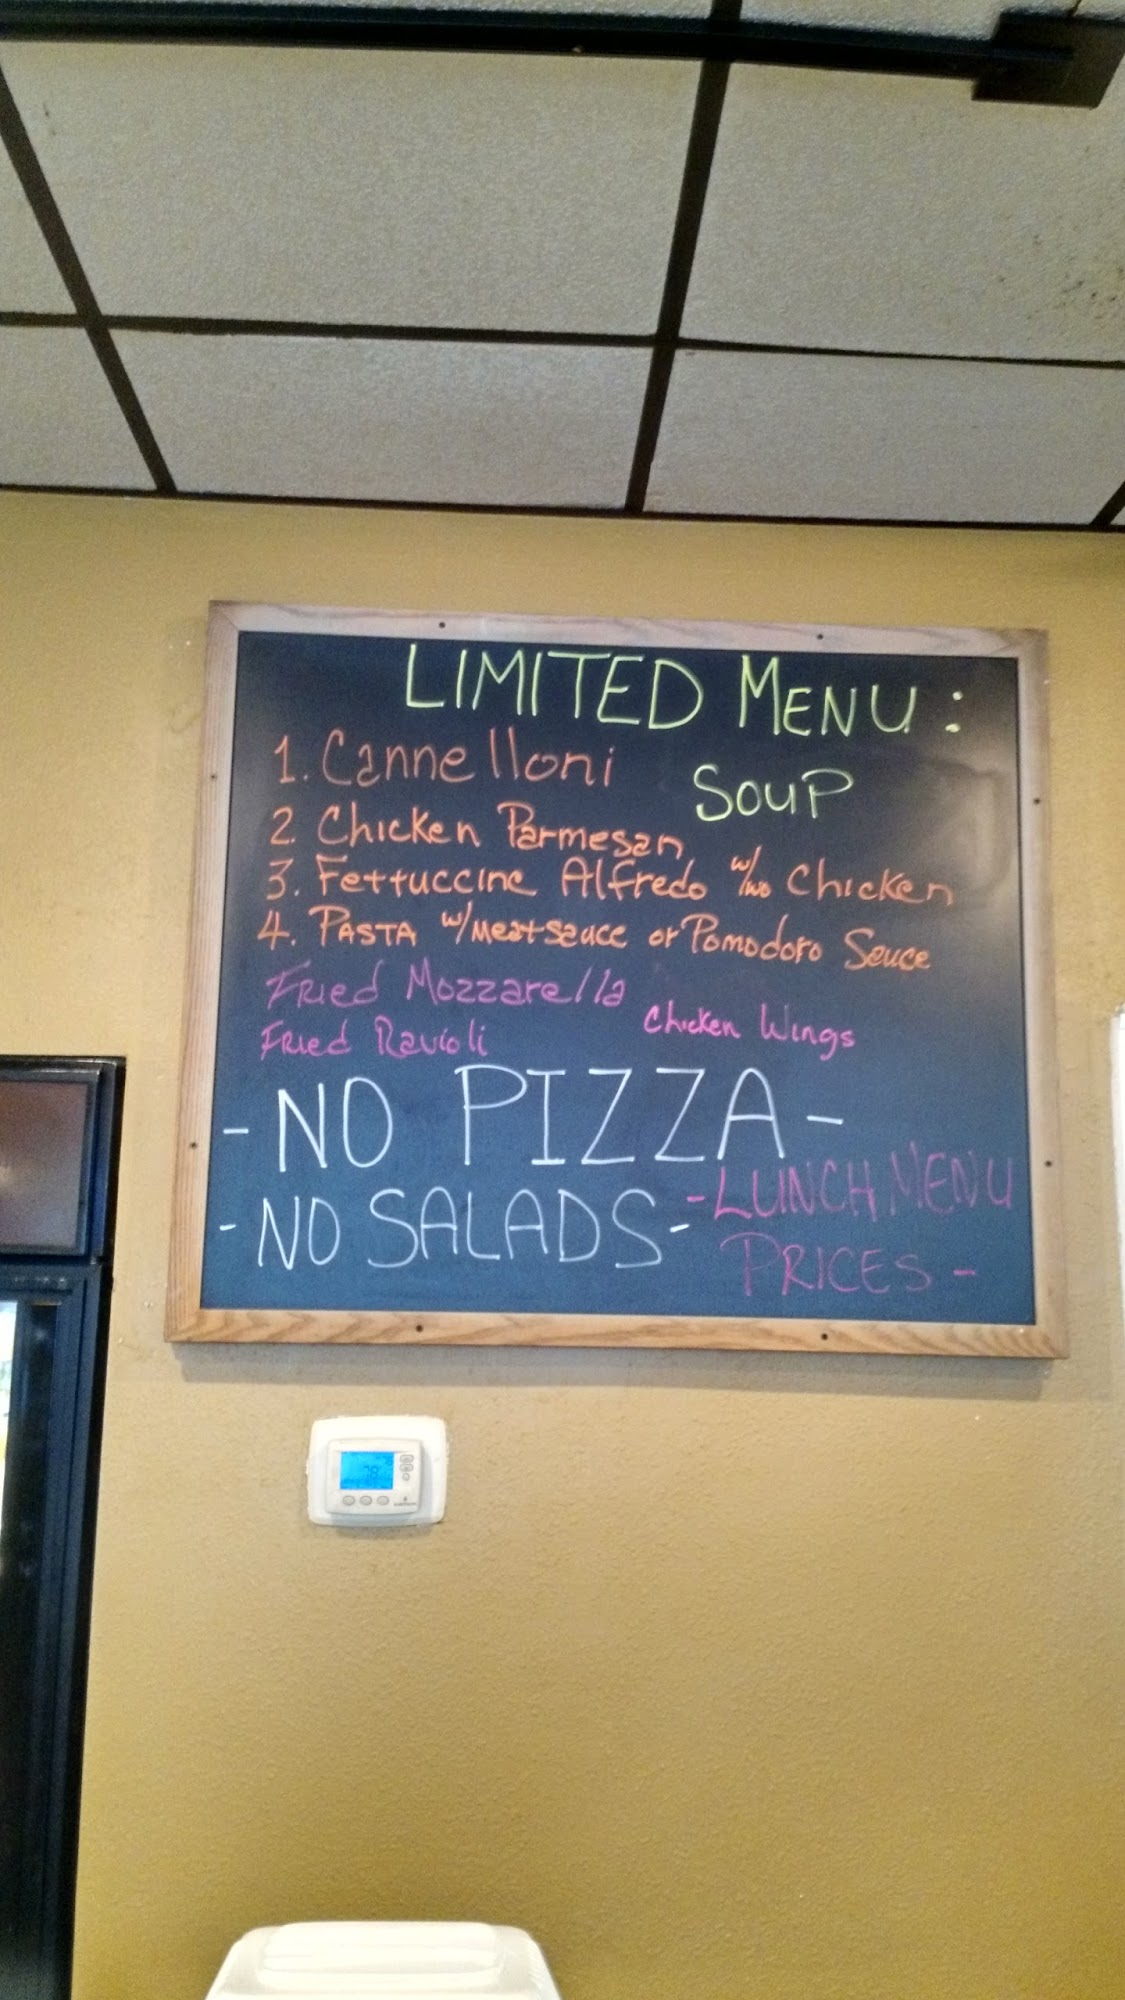 LIMITED MENU:
1. Cannelloni
SOUP
2. Chicken Parmesan
3. Fettuccine Alfredo w/wo Chicken
4. PASTA w/Meatsauce or Pomodoro Sauce
Fried Mozzarella
Chicken Wings
Fried Ravioli
- NO PIZZA -
- NO SALADS -
- LUNCH MENU
PRICES -
78